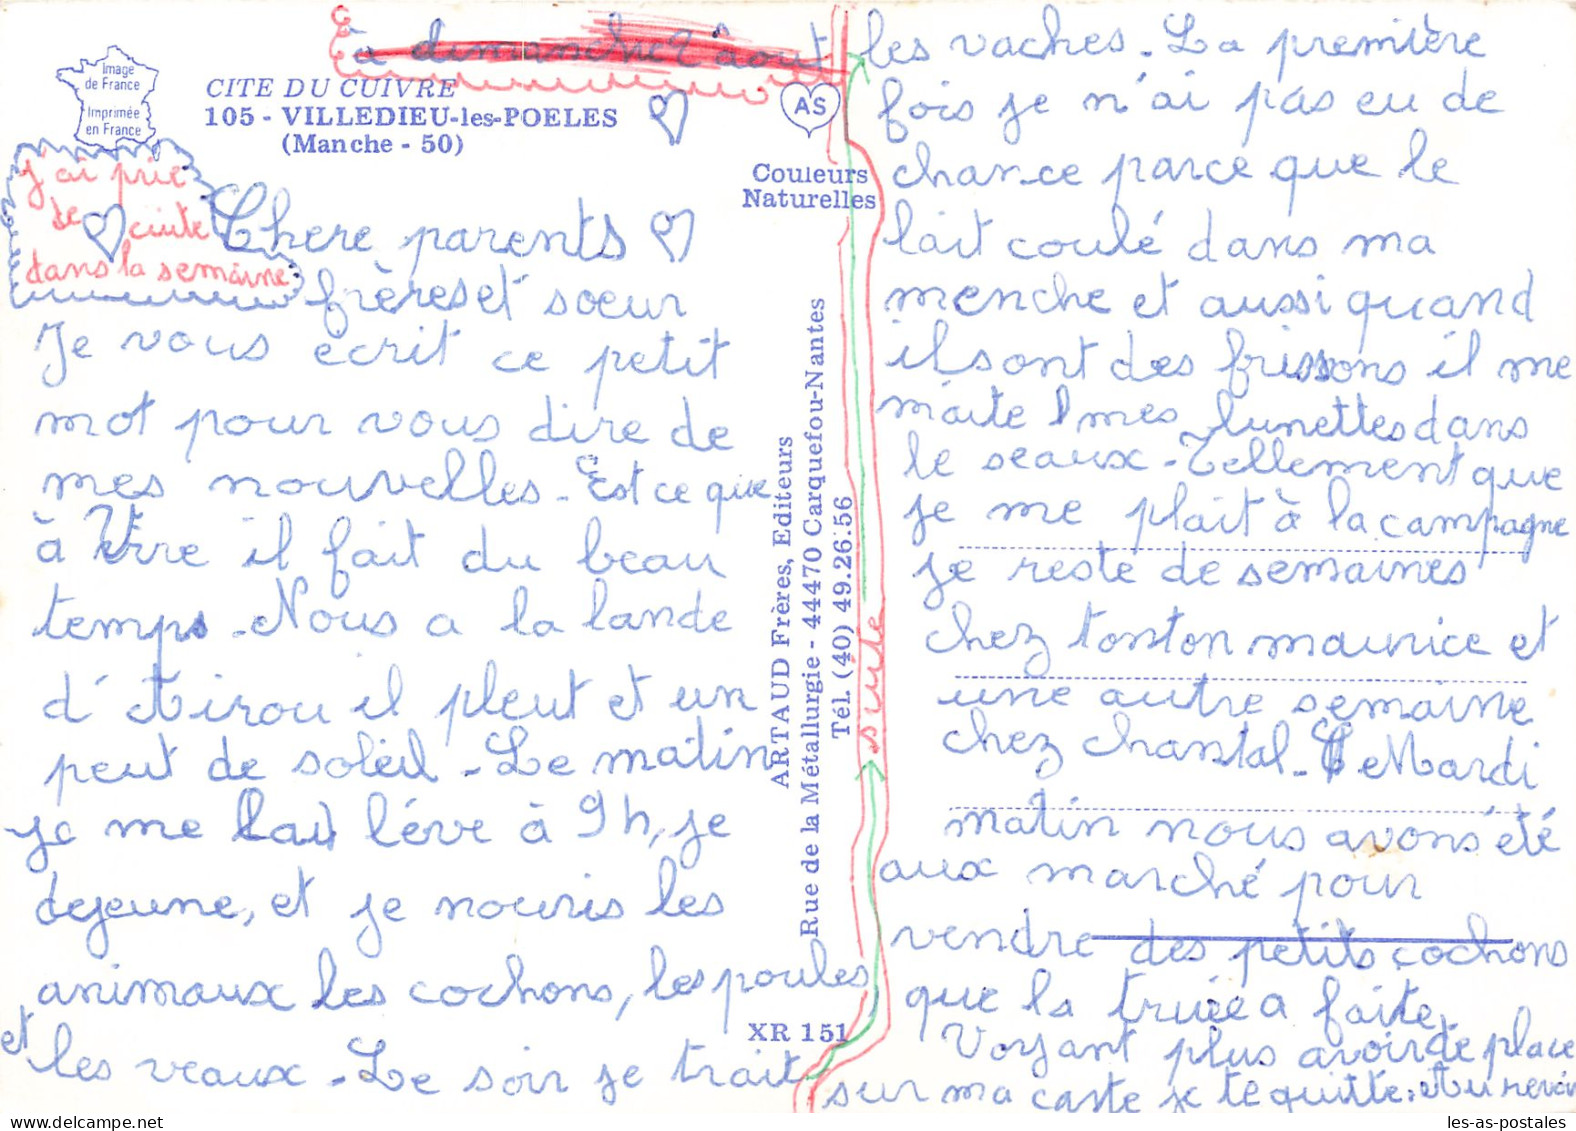 à dimanche 2 août
Image
de France
Imprimée
en France
CITE DU CUIVRE
105 - VILLEDIEU-les-POELES
(Manche - 50)
AS
Couleurs
Naturelles
j'ai prie
de cuite
dans la semaine
Chere parents
frères et soeur
Je vous ecrit ce petit
mot pour vous dire de
mes nouvelles - Est ce que
à Virre il fait du beau
temps - Nous a la lande
d'Airou il pleut et un
peut de soleil - Le matin
je me léve à 9 h, je
dejeune, et je nouris les
animaux les cochons, les poules
et les veaux - Le soir je trait
ARTAUD Frères, Editeurs
Rue de la Métallurgie - 44470 Carquefou-Nantes
Tél. (40) 49.26.56
XR 151
suite
les vaches - La première
fois je n'ai pas eu de
chance parce que le
lait coulé dans ma
menche et aussi quand
il sont des frissons il me
maite mes lunettes dans
le seaux - Tellement que
je me plait à la campagne
je reste de semaines
chez tonton maurice et
une autre semaine
chez chantal - Le Mardi
matin nous avons été
aux marché pour
vendre des petits cochons
que la truie a faite,
Voyant plus avoir de place
sur ma carte je te quitte. et au revoir
les-as-postales